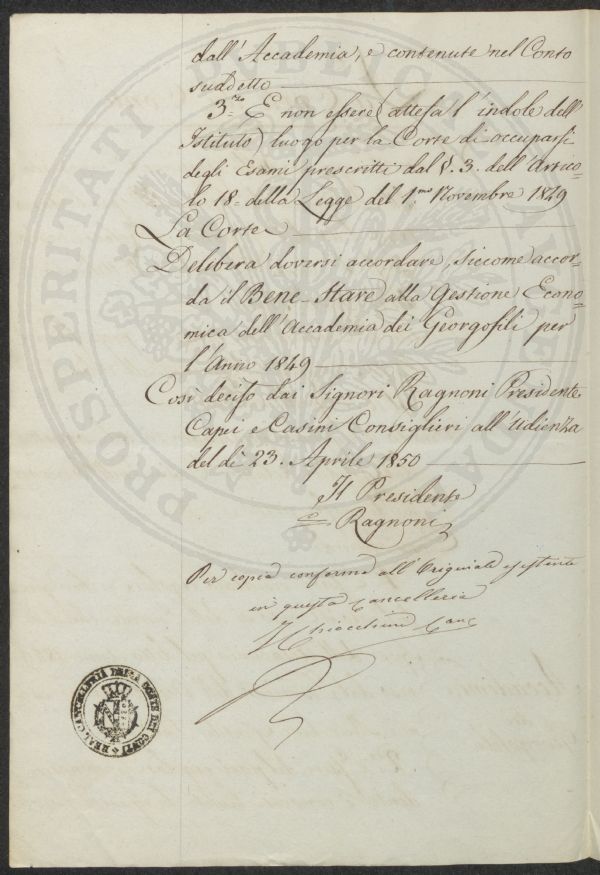 dall'Accademia, e contenute nel Conto
suddetto
3.zo E non essere (attesa l'indole dell'
Istituto) luogo per la Corte di occuparsi
degli Esami prescritti dal §. 3. dell'Artico=
lo 18. della Legge del 1.mo Novembre 1849
La Corte
Delibera doversi accordare, siccome accor=
da il Bene-stare alla Gestione Econo=
mica dell'Accademia dei Georgofili per
l'Anno 1849
Così deciso dai Signori Ragnoni Presidente
Capei e Casini Consiglieri all'Udienza
del dì 23. Aprile 1850
Il Presidente
Ragnoni
Per copia conforme all'Originale esistente
in questa Cancelleria
Canc
REAL CANCELLERIA DELLA CORTE DEI CONTI
PROSPERITATI PUBLICAE